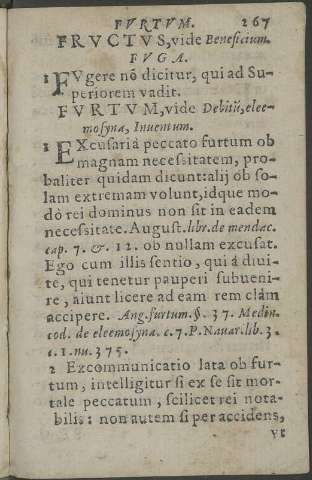 FVRTVM. 267
FRVCTVS, vide Beneficium.
FVGA.
1 FVgere nõ dicitur, qui ad Su-
periorem vadit.
FVRTVM, vide Debitũ, elee-
mosyna, Inuentum.
1 EXcusari à peccato furtum ob
magnam necessitatem, pro-
baliter quidam dicunt: alij ob so-
lam extremam volunt, idque mo-
dò rei dominus non sit in eadem
necessitate. August. libr. de mendac.
cap. 7. & 12. ob nullam excusat.
Ego cum illis sentio, qui á diui-
te, qui tenetur pauperi subueni-
re, aiunt licere ad eam rem clàm
accipere. Ang. furtum. §. 37. Medin.
cod. de eleemosyna. c. 7. P. Nauar. lib. 3.
c. 1. nu. 375.
2 Excommunicatio lata ob fur-
tum, intelligitur si ex se sit mor-
tale peccatum, scilicet rei nota-
bilis: non autem si per accidens,
vt